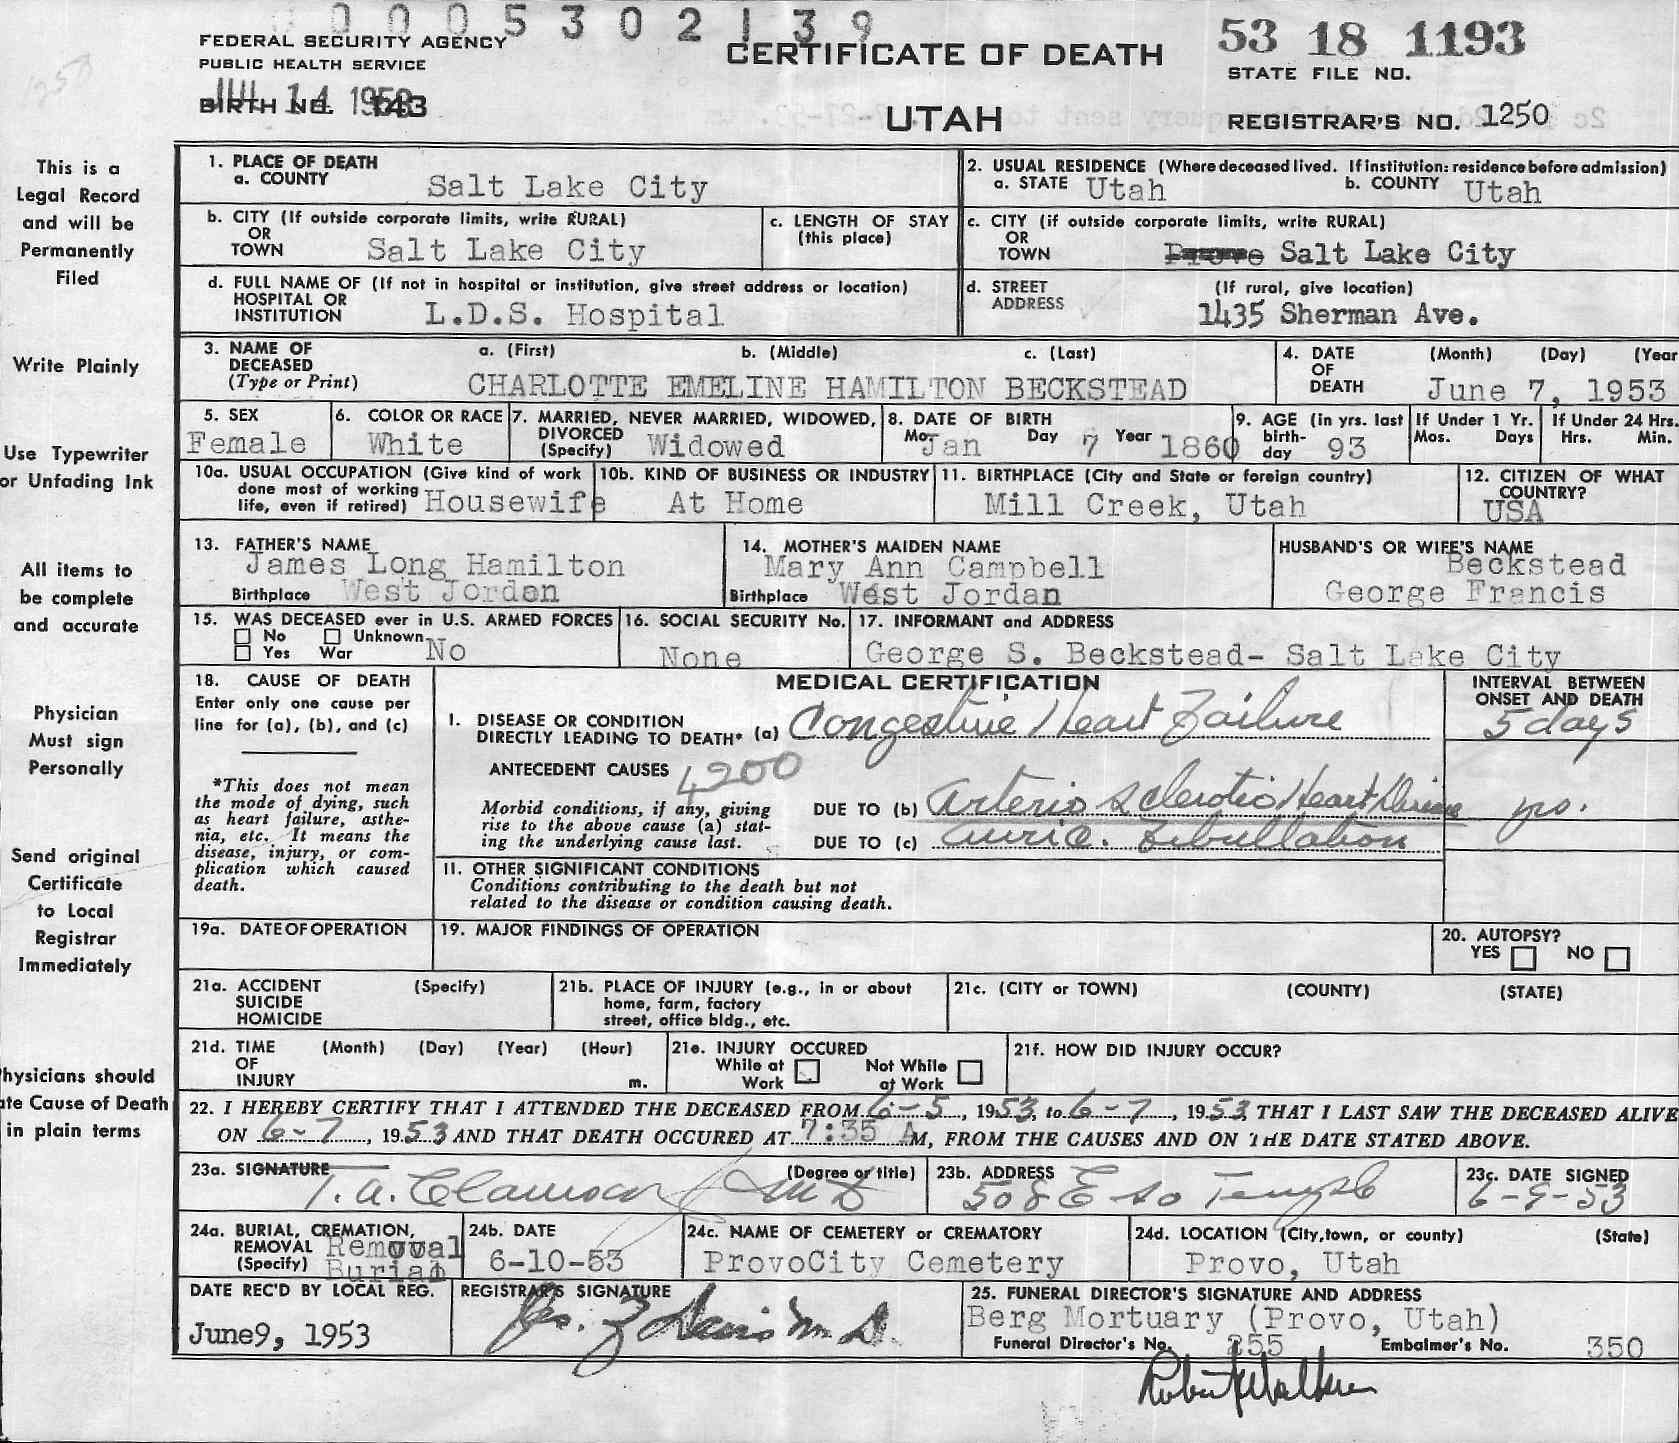 0005302139
53 18 1193
FEDERAL SECURITY AGENCY
PUBLIC HEALTH SERVICE
CERTIFICATE OF DEATH
STATE FILE NO.
BIRTH NO. 143
JUL 14 1953
UTAH
REGISTRAR'S NO. 1250
This is a
Legal Record
and will be
Permanently
Filed
Write Plainly
Use Typewriter
or Unfading Ink
All items to
be complete
and accurate
Physician
Must sign
Personally
Send original
Certificate
to Local
Registrar
Immediately
hysicians should
te Cause of Death
in plain terms
1. PLACE OF DEATH
a. COUNTY Salt Lake City
2. USUAL RESIDENCE (Where deceased lived. If institution: residence before admission)
a. STATE Utah b. COUNTY Utah
b. CITY (If outside corporate limits, write RURAL)
OR
TOWN Salt Lake City
c. LENGTH OF STAY
(this place)
c. CITY (if outside corporate limits, write RURAL)
OR
TOWN Provo Salt Lake City
d. FULL NAME OF (If not in hospital or institution, give street address or location)
HOSPITAL OR
INSTITUTION L.D.S. Hospital
d. STREET (If rural, give location)
ADDRESS 1435 Sherman Ave.
3. NAME OF a. (First) b. (Middle) c. (Last)
DECEASED
(Type or Print) CHARLOTTE EMELINE HAMILTON BECKSTEAD
4. DATE (Month) (Day) (Year
OF
DEATH June 7, 1953
5. SEX
Female
6. COLOR OR RACE
White
7. MARRIED, NEVER MARRIED, WIDOWED,
DIVORCED
(Specify) Widowed
8. DATE OF BIRTH
Mo. Jan Day 7 Year 1860
9. AGE (in yrs. last
birth-
day 93
If Under 1 Yr.
Mos. Days
If Under 24 Hrs.
Hrs. Min.
10a. USUAL OCCUPATION (Give kind of work
done most of working
life, even if retired) Housewife
10b. KIND OF BUSINESS OR INDUSTRY
At Home
11. BIRTHPLACE (City and State or foreign country)
Mill Creek, Utah
12. CITIZEN OF WHAT
COUNTRY?
USA
13. FATHER'S NAME
James Long Hamilton
Birthplace West Jordan
14. MOTHER'S MAIDEN NAME
Mary Ann Campbell
Birthplace West Jordan
HUSBAND'S OR WIFE'S NAME
Beckstead
George Francis
15. WAS DECEASED ever in U.S. ARMED FORCES
No Unknown
Yes War No
16. SOCIAL SECURITY No.
None
17. INFORMANT and ADDRESS
George S. Beckstead- Salt Lake City
18. CAUSE OF DEATH
Enter only one cause per
line for (a), (b), and (c)
*This does not mean
the mode of dying, such
as heart failure, asthe-
nia, etc. It means the
disease, injury, or com-
plication which caused
death.
MEDICAL CERTIFICATION
INTERVAL BETWEEN
ONSET AND DEATH
I. DISEASE OR CONDITION
DIRECTLY LEADING TO DEATH* (a) Congestive Heart Failure 5 days
ANTECEDENT CAUSES 4200
Morbid conditions, if any, giving
rise to the above cause (a) stat-
ing the underlying cause last.
DUE TO (b) Arterio sclerotic Heart Disease yrs.
DUE TO (c) Auric. Fibullation
II. OTHER SIGNIFICANT CONDITIONS
Conditions contributing to the death but not
related to the disease or condition causing death.
19a. DATE OF OPERATION
19. MAJOR FINDINGS OF OPERATION
20. AUTOPSY?
YES NO
21a. ACCIDENT (Specify)
SUICIDE
HOMICIDE
21b. PLACE OF INJURY (e.g., in or about
home, farm, factory
street, office bldg., etc.
21c. (CITY or TOWN) (COUNTY) (STATE)
21d. TIME (Month) (Day) (Year) (Hour)
OF
INJURY m.
21e. INJURY OCCURED
While at Work Not While at Work
21f. HOW DID INJURY OCCUR?
22. I HEREBY CERTIFY THAT I ATTENDED THE DECEASED FROM 6-5, 1953, to 6-7, 1953, THAT I LAST SAW THE DECEASED ALIVE
ON 6-7, 1953 AND THAT DEATH OCCURED AT 7:35 AM, FROM THE CAUSES AND ON THE DATE STATED ABOVE.
23a. SIGNATURE (Degree or title)
T. A. Clawson Jr MD
23b. ADDRESS
508 E So Temple
23c. DATE SIGNED
6-9-53
24a. BURIAL, CREMATION,
REMOVAL Removal
(Specify) Burial
24b. DATE
6-10-53
24c. NAME OF CEMETERY or CREMATORY
ProvoCity Cemetery
24d. LOCATION (City, town, or county) (State)
Provo, Utah
DATE REC'D BY LOCAL REG.
June9, 1953
REGISTRAR'S SIGNATURE
M.D.
25. FUNERAL DIRECTOR'S SIGNATURE AND ADDRESS
Berg Mortuary (Provo, Utah)
Funeral Director's No. 355 Embalmer's No. 350